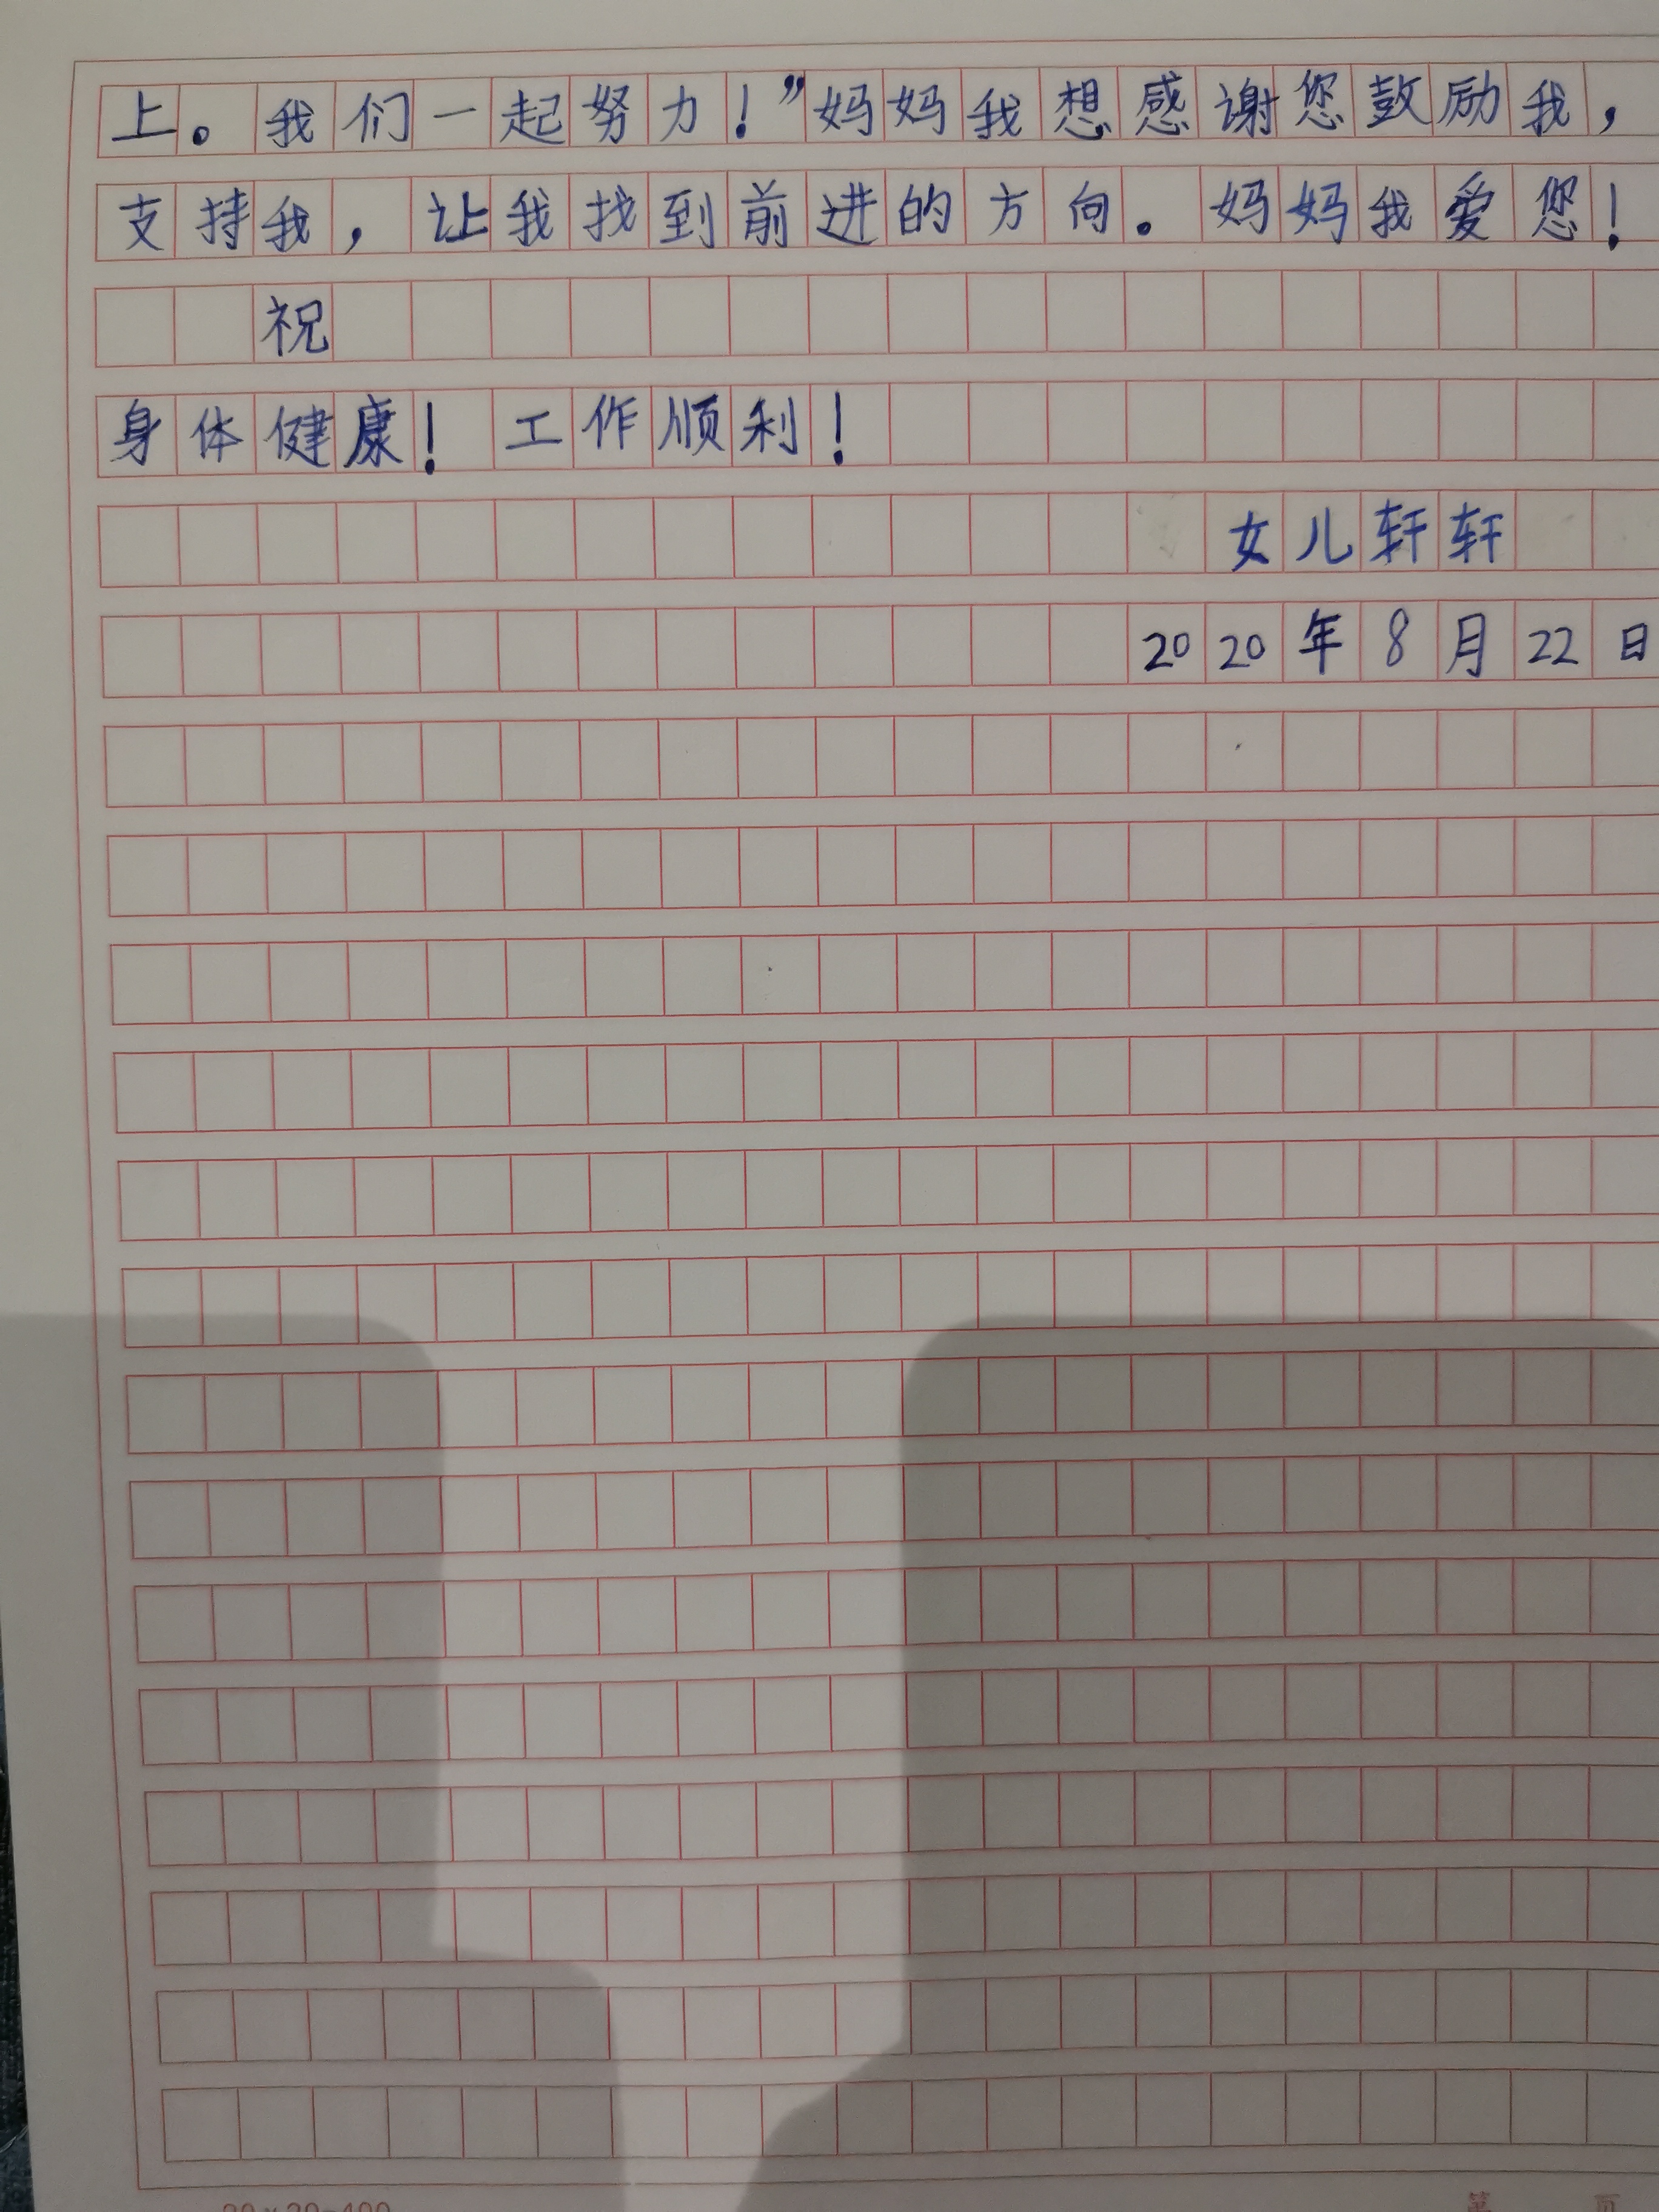 上。我们一起努力！”妈妈我想感谢您鼓励我，
支持我，让我找到前进的方向。妈妈我爱您！
祝
身体健康！工作顺利！
女儿轩轩
2020年8月22日
第 页